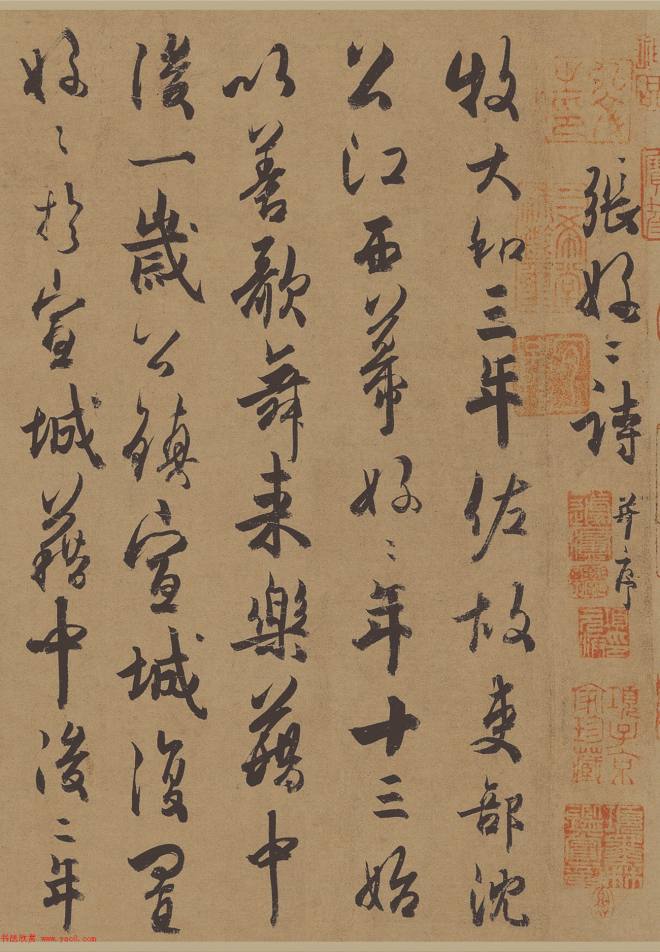 張好〻詩并序
牧大和三年佐故吏部沈
公江西幕好〻年十三始
以善歌舞来樂籍中
後一歲公鎮宣城復置
好〻於宣城籍中後二年
項子京
家珍藏
书法欣赏 www.yac8.com